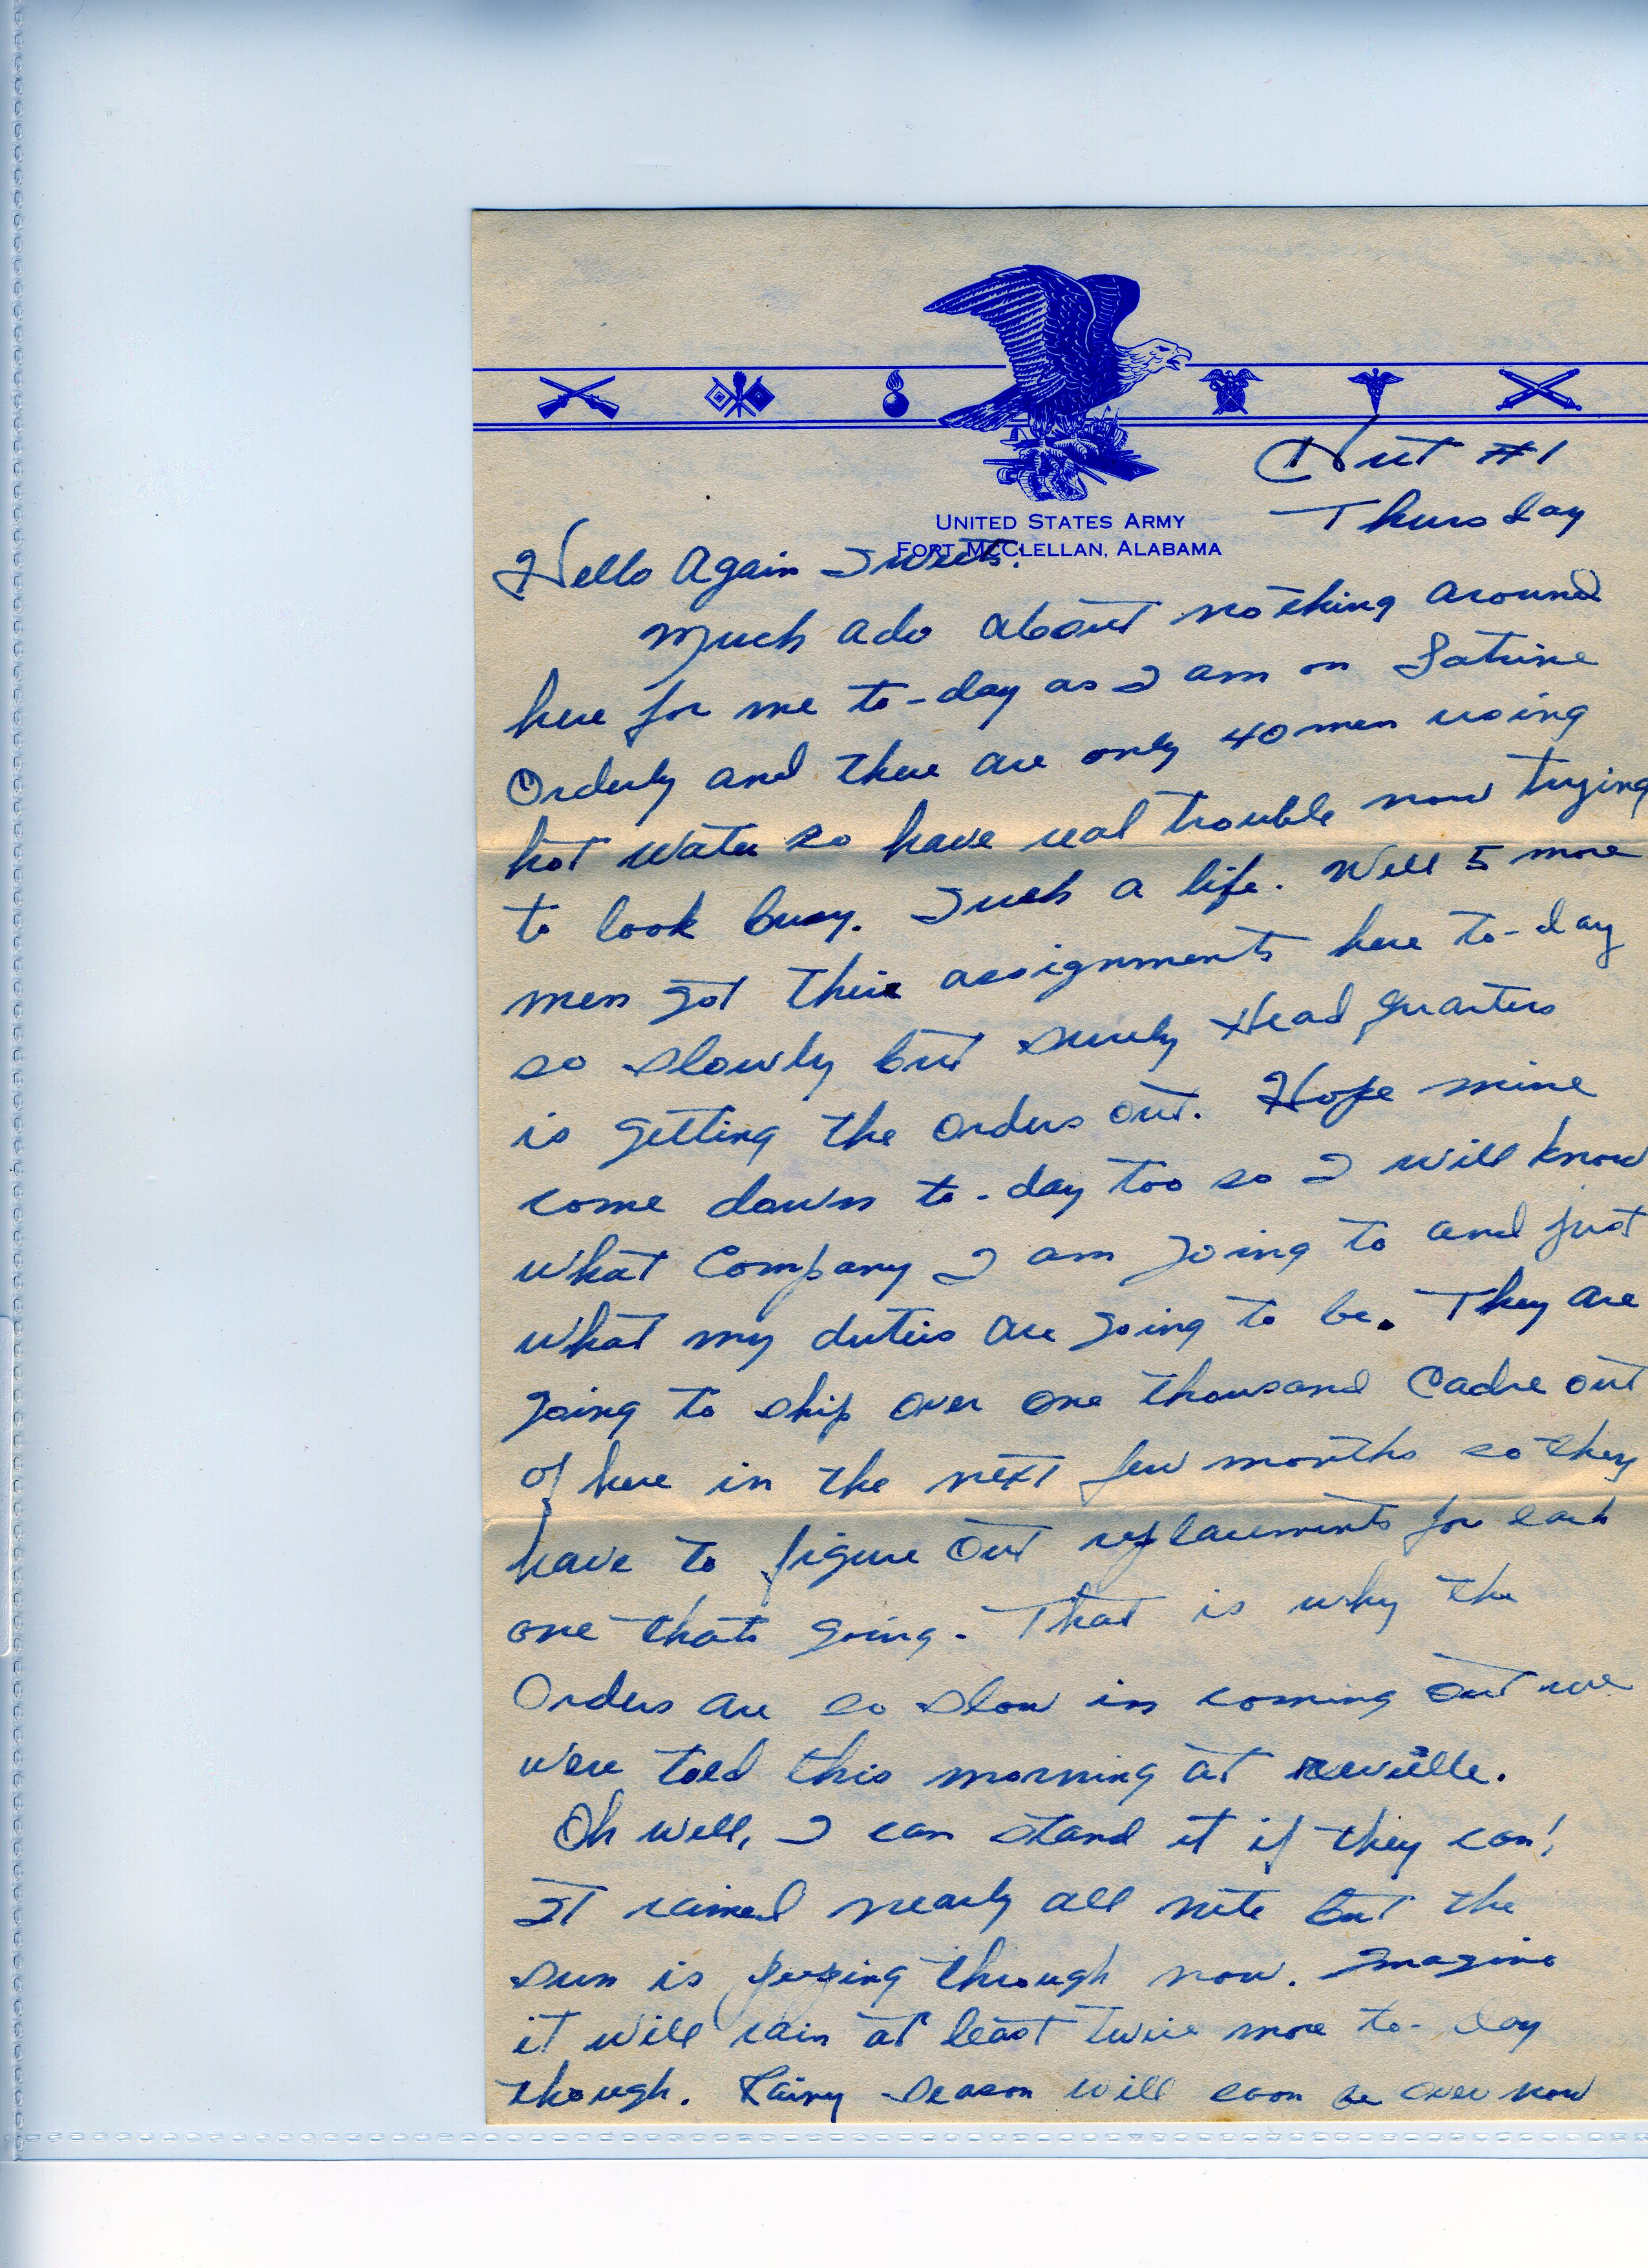 Hut #1
Thursday
UNITED STATES ARMY
FORT MCCLELLAN, ALABAMA
Hello Again Sweets:
Much ado about nothing around
here for me to-day as I am on Latrine
Orderly and there are only 40 men using
hot water so have real trouble now trying
to look busy. Such a life. Well 5 more
men got their assignments here to-day
so slowly but surely Head Quarters
is getting the orders out. Hope mine
come down to-day too so I will know
what Company I am going to and just
what my duties are going to be. They are
going to ship over one thousand Cadre out
of here in the next few months so they
have to figure out replacements for each
one thats going. That is why the
Orders are so slow in coming out we
were told this morning at reveille.
Oh well, I can stand it if they can!
It rained nearly all nite but the
sun is peeping through now. Imagine
it will rain at least twice more to-day
though. Rainy season will soon be over now